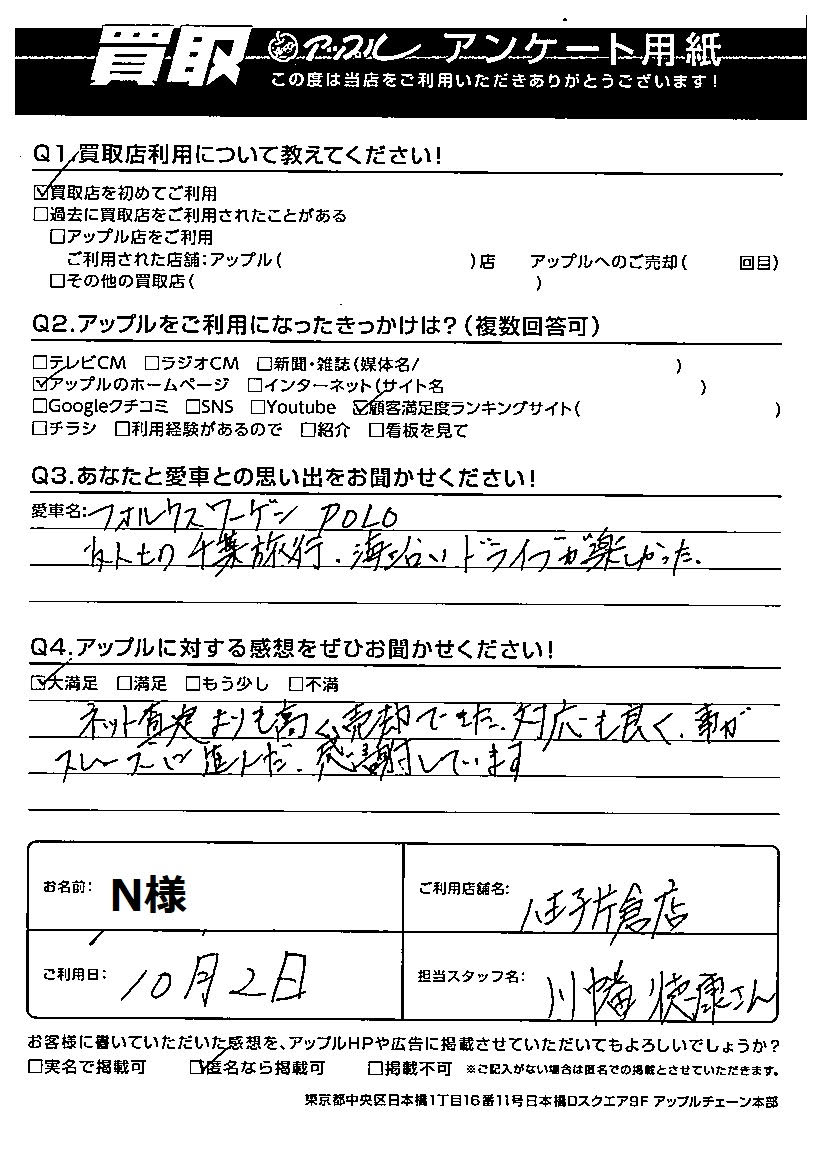 買取 アップル アンケート用紙
この度は当店をご利用いただきありがとうございます!
Q1.買取店利用について教えてください!
☑買取店を初めてご利用
□過去に買取店をご利用されたことがある
□アップル店をご利用
ご利用された店舗:アップル( )店 アップルへのご売却( 回目)
□その他の買取店( )
Q2.アップルをご利用になったきっかけは?(複数回答可)
□テレビCM □ラジオCM □新聞・雑誌(媒体名/ )
☑アップルのホームページ □インターネット(サイト名 )
□Googleクチコミ □SNS □Youtube ☑顧客満足度ランキングサイト( )
□チラシ □利用経験があるので □紹介 □看板を見て
Q3.あなたと愛車との思い出をお聞かせください!
愛車名:フォルクスワーゲン POLO
千葉旅行、海沿いドライブが楽しかった。
Q4.アップルに対する感想をぜひお聞かせください!
☑大満足 □満足 □もう少し □不満
ネット査定よりも高く売却できた。対応も良く、事が
スムーズに進んだ。感謝しています
お名前: N様
ご利用店舗名: 八王子片倉店
ご利用日: 10月2日
担当スタッフ名: 川幡 徳康さん
お客様に書いていただいた感想を、アップルHPや広告に掲載させていただいてもよろしいでしょうか?
□実名で掲載可 ☑匿名なら掲載可 □掲載不可 ※ご記入がない場合は匿名での掲載とさせていただきます。
東京都中央区日本橋1丁目16番11号日本橋Dスクエア9F アップルチェーン本部